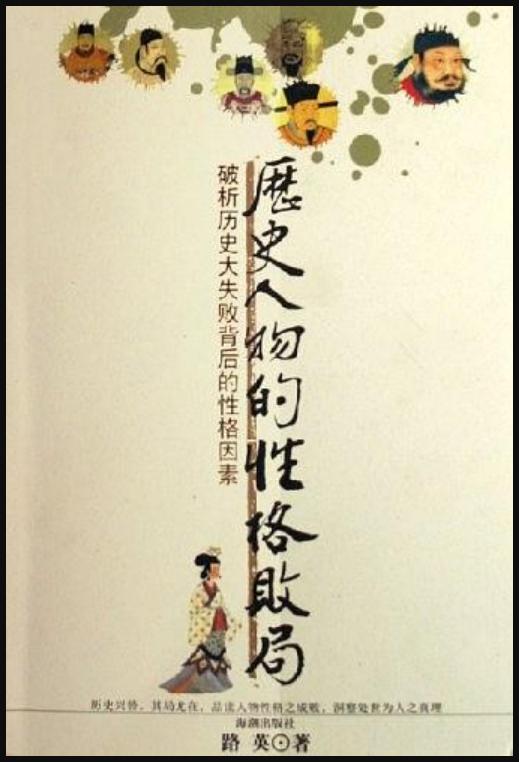 歷史人物的性格敗局
破析历史大失败背后的性格因素
历史兴替，其局尤在，品读人物性格之成败，洞察处世为人之真理
海潮出版社
路 英⊙著